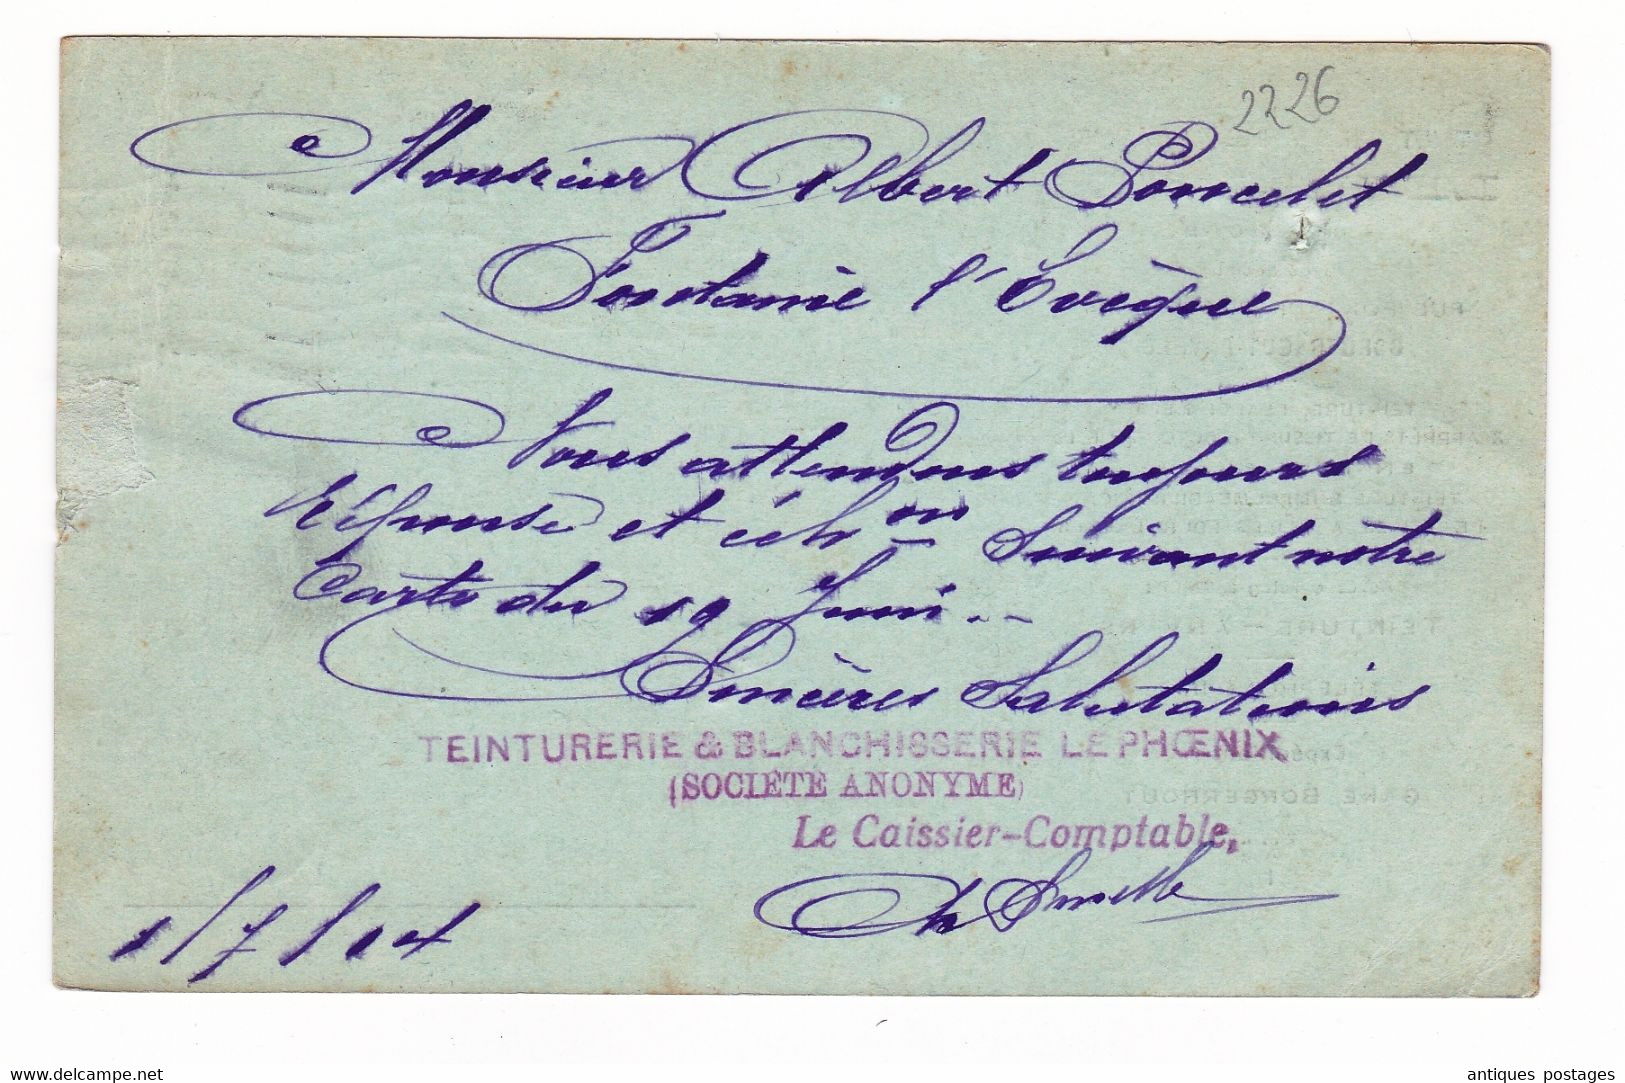 2226
Monsieur Albert Poncelet
Fontaine l'Evêque
Nous attendons toujours
Réponse et éch on suivant notre
Carte du 19 Juin ..
Sincères Salutations
TEINTURERIE & BLANCHISSERIE LE PHŒNIX
(SOCIÉTÉ ANONYME)
Le Caissier-Comptable,
1/7/04
www.delcampe.net
antiques postages